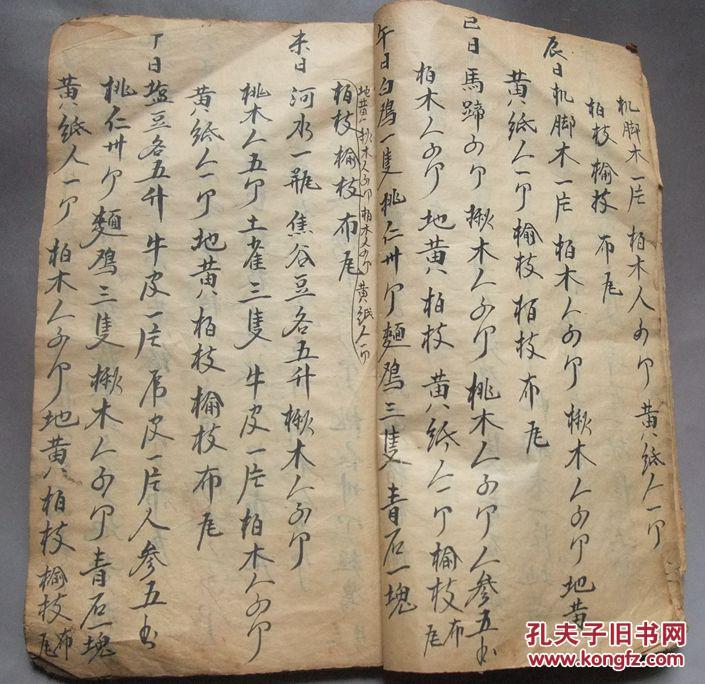 机脚木一片 柏木人 黄纸人一
柏枝榆枝布尾
辰日机脚木一片 柏木人 楸木人 地黄
黄纸人一 榆枝柏枝布尾
巳日馬蹄 楸木人 桃木人 人参五
柏木人 地黄柏枝黄纸人一 榆枝布尾
午日白鸡一隻桃仁卅 麵鸡三隻青石一塊
地黄楸木人 柏木人 黄纸人一
柏枝榆枝布尾
未日河水一瓶焦谷豆各五升楸木人
桃木人五 土雀三隻牛皮一片柏木人
黄纸人一 地黄柏枝榆枝布尾
丁日盐豆各五升牛皮一片 皮一片人参五
桃仁卅 麵鸡三隻楸木人 青石一塊
黄纸人一 柏木人 地黄柏枝榆枝布尾
孔夫子旧书网
www.kongfz.com